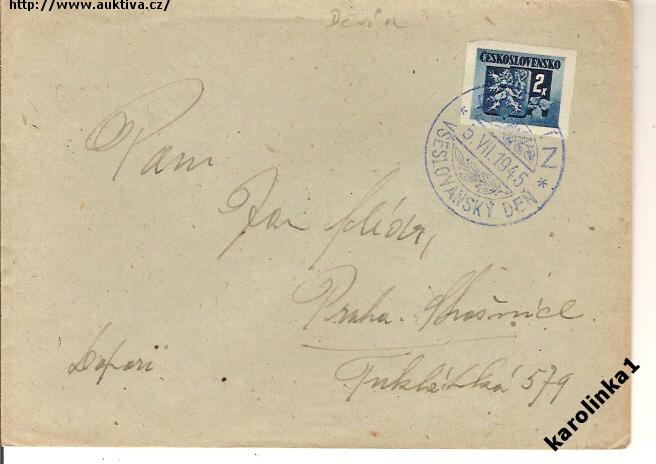 http://www.auktiva.cz/
Devín
ČESKOSLOVENSKO
2 K
5.VII.1945
VŠESLOVANSKÝ DEŇ
Pan
Jan
Praha - Strašnice
579
karolinka1